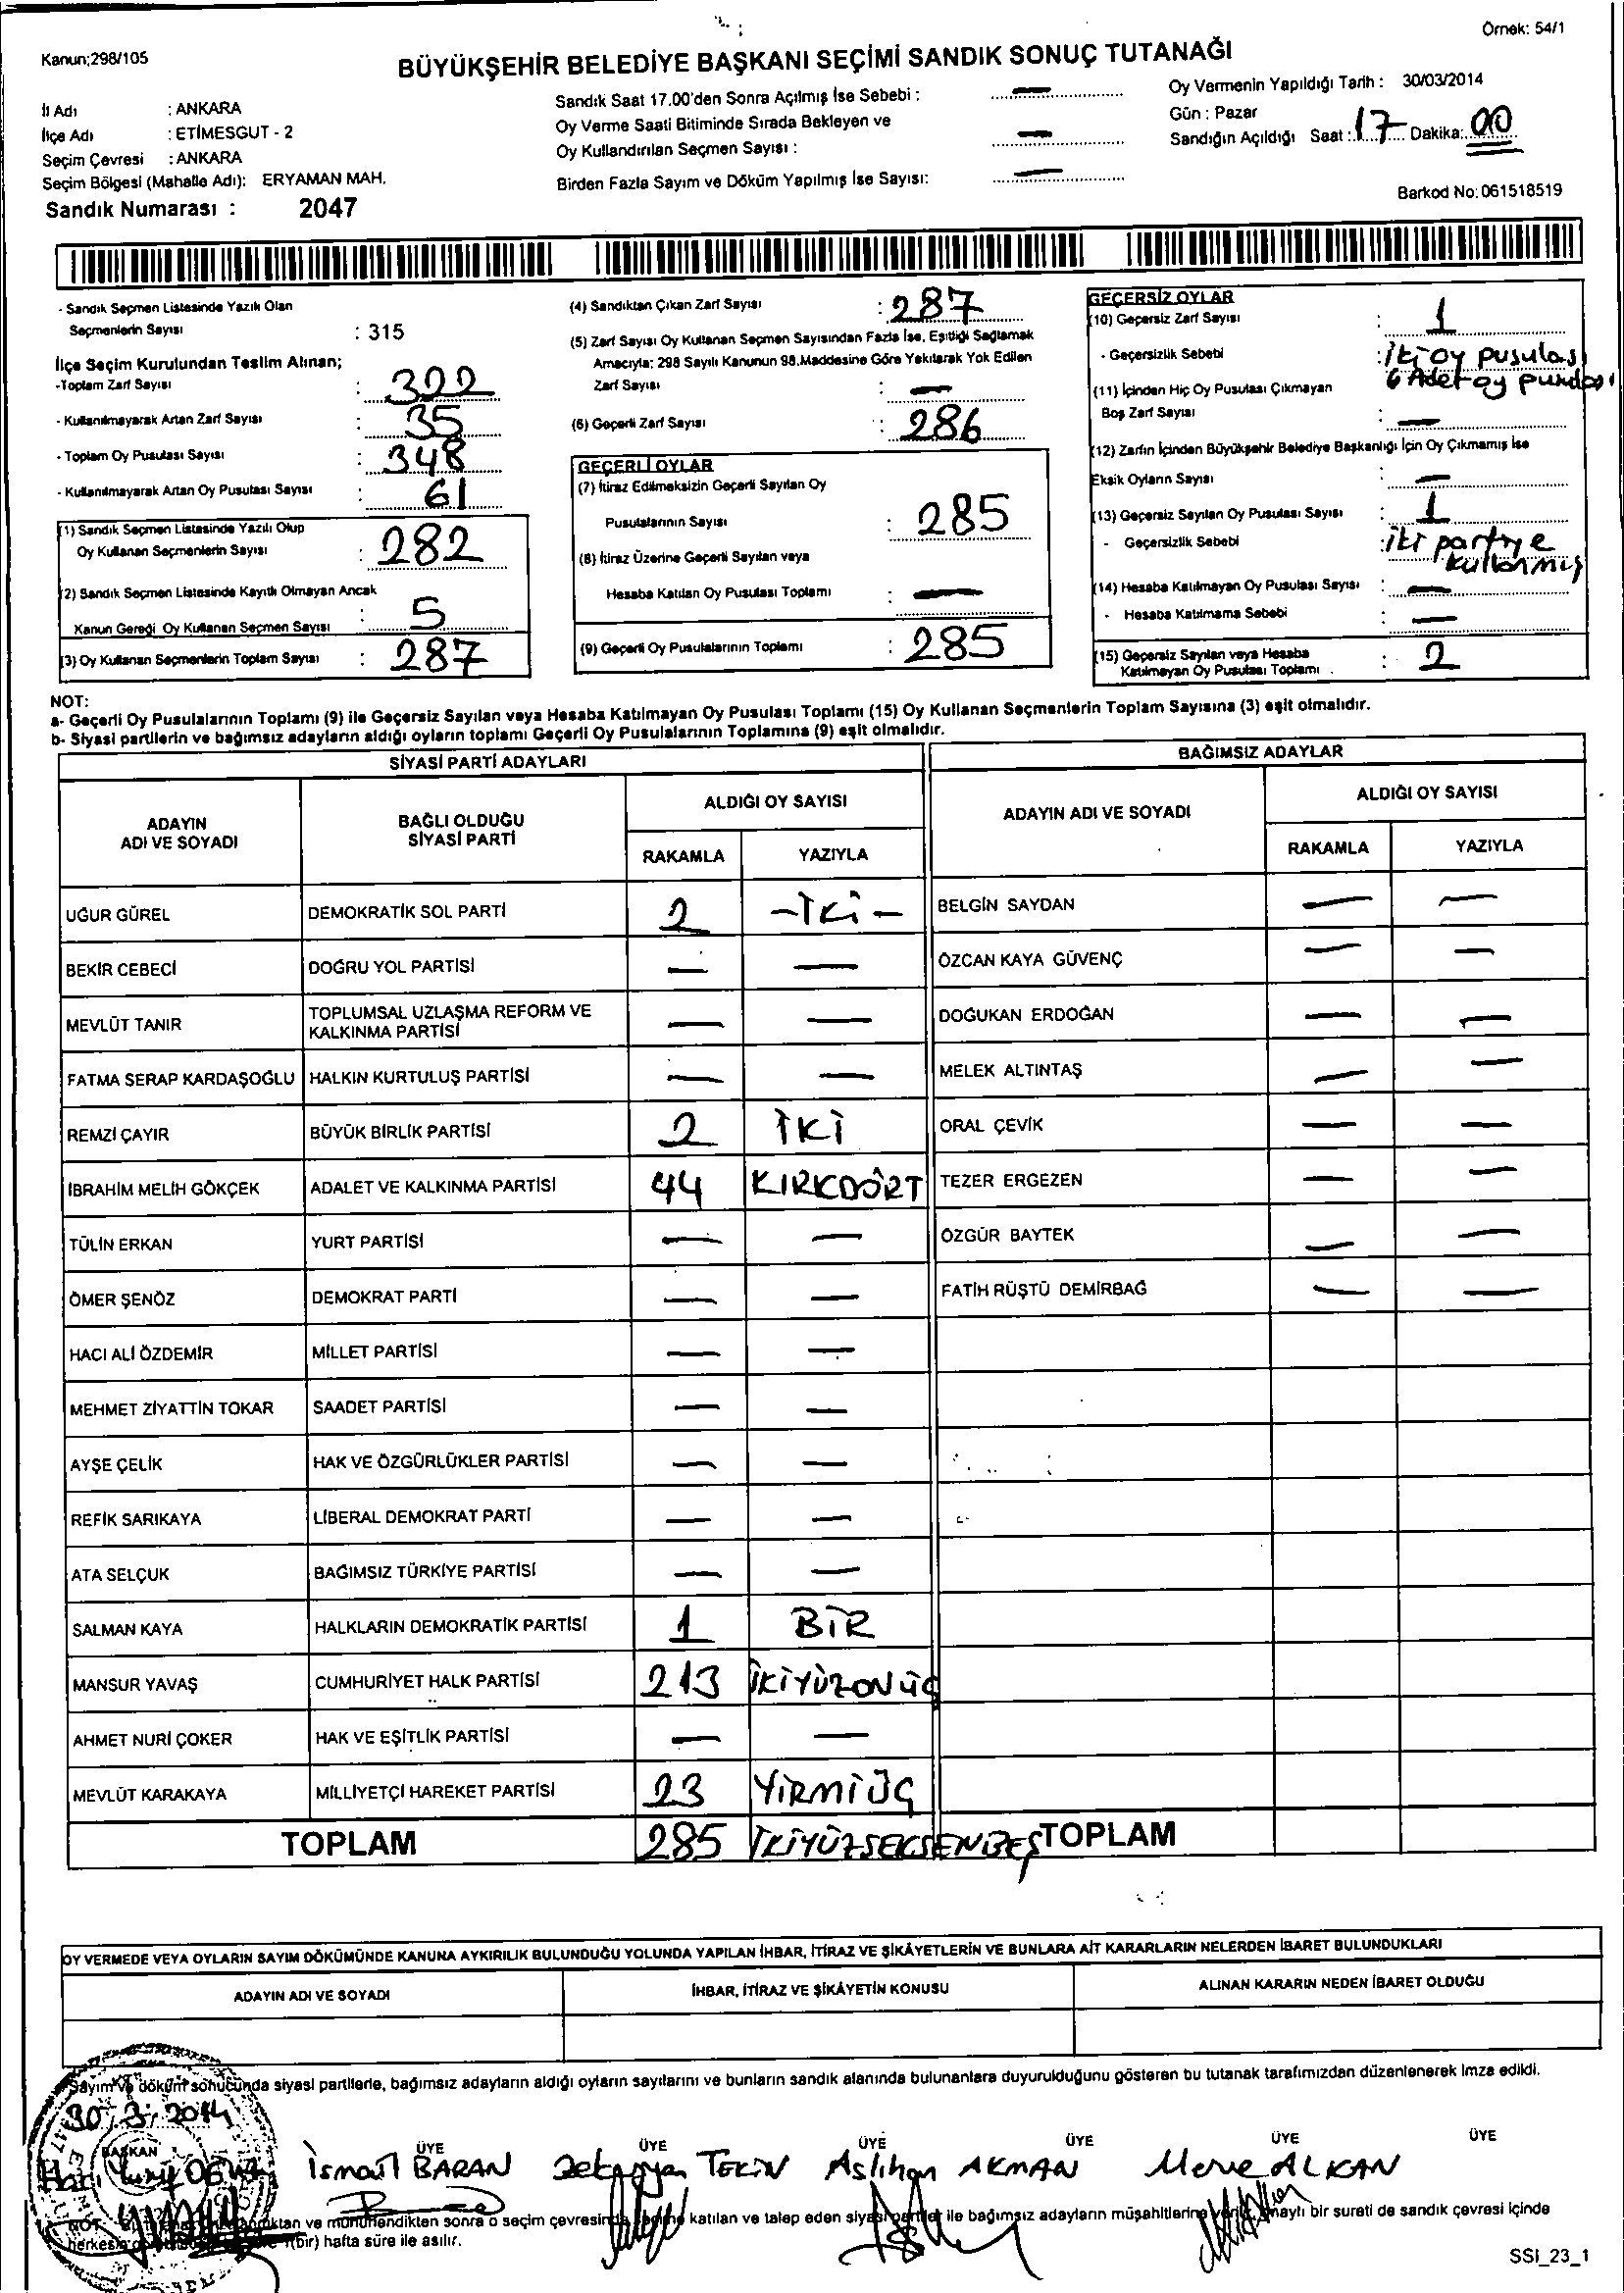 Örnek: 54/1
Kanun;298/105
BÜYÜKŞEHİR BELEDİYE BAŞKANI SEÇİMİ SANDIK SONUÇ TUTANAĞI
İl Adı : ANKARA
İlçe Adı : ETİMESGUT - 2
Seçim Çevresi : ANKARA
Seçim Bölgesi (Mahalle Adı): ERYAMAN MAH.
Sandık Numarası : 2047
Sandık Saat 17.00'den Sonra Açılmış İse Sebebi : —
Oy Verme Saati Bitiminde Sırada Bekleyen ve
Oy Kullandırılan Seçmen Sayısı : —
Birden Fazla Sayım ve Döküm Yapılmış İse Sayısı: —
Oy Vermenin Yapıldığı Tarih : 30/03/2014
Gün : Pazar
Sandığın Açıldığı Saat : 17 Dakika: 00
Barkod No: 061518519
- Sandık Seçmen Listesinde Yazılı Olan
Seçmenlerin Sayısı : 315
İlçe Seçim Kurulundan Teslim Alınan;
-Toplam Zarf Sayısı : 322
- Kullanılmayarak Artan Zarf Sayısı : 35
- Toplam Oy Pusulası Sayısı : 348
- Kullanılmayarak Artan Oy Pusulası Sayısı : 61
(1) Sandık Seçmen Listesinde Yazılı Olup
Oy Kullanan Seçmenlerin Sayısı : 282
(2) Sandık Seçmen Listesinde Kayıtlı Olmayan Ancak
Kanun Gereği Oy Kullanan Seçmen Sayısı : 5
(3) Oy Kullanan Seçmenlerin Toplam Sayısı : 287
(4) Sandıktan Çıkan Zarf Sayısı : 287
(5) Zarf Sayısı Oy Kullanan Seçmen Sayısından Fazla İse, Eşitliği Sağlamak
Amacıyla; 298 Sayılı Kanunun 98.Maddesine Göre Yakılarak Yok Edilen
Zarf Sayısı : —
(6) Geçerli Zarf Sayısı : 286
GEÇERLİ OYLAR
(7) İtiraz Edilmeksizin Geçerli Sayılan Oy
Pusulalarının Sayısı : 285
(8) İtiraz Üzerine Geçerli Sayılan veya
Hesaba Katılan Oy Pusulası Toplamı : —
(9) Geçerli Oy Pusulalarının Toplamı : 285
GEÇERSİZ OYLAR
(10) Geçersiz Zarf Sayısı : 1
- Geçersizlik Sebebi : iki oy pusulası
6 Adet oy
(11) İçinden Hiç Oy Pusulası Çıkmayan
Boş Zarf Sayısı : —
(12) Zarfın İçinden Büyükşehir Belediye Başkanlığı İçin Oy Çıkmamış İse
Eksik Oyların Sayısı —
(13) Geçersiz Sayılan Oy Pusulası Sayısı : 1
- Geçersizlik Sebebi : iki partiye
kullanmış
(14) Hesaba Katılmayan Oy Pusulası Sayısı : —
- Hesaba Katılmama Sebebi : —
(15) Geçersiz Sayılan veya Hesaba
Katılmayan Oy Pusulası Toplamı : 2
NOT:
a- Geçerli Oy Pusulalarının Toplamı (9) ile Geçersiz Sayılan veya Hesaba Katılmayan Oy Pusulası Toplamı (15) Oy Kullanan Seçmenlerin Toplam Sayısına (3) eşit olmalıdır.
b- Siyasi partilerin ve bağımsız adayların aldığı oyların toplamı Geçerli Oy Pusulalarının Toplamına (9) eşit olmalıdır.
SİYASİ PARTİ ADAYLARI
ADAYIN
ADI VE SOYADI
BAĞLI OLDUĞU
SİYASİ PARTİ
ALDIĞI OY SAYISI
RAKAMLA YAZIYLA
UĞUR GÜREL DEMOKRATİK SOL PARTİ 2 -İKİ-
BEKİR CEBECİ DOĞRU YOL PARTİSİ — —
MEVLÜT TANIR TOPLUMSAL UZLAŞMA REFORM VE
KALKINMA PARTİSİ — —
FATMA SERAP KARDAŞOĞLU HALKIN KURTULUŞ PARTİSİ — —
REMZİ ÇAYIR BÜYÜK BİRLİK PARTİSİ 2 İKİ
İBRAHİM MELİH GÖKÇEK ADALET VE KALKINMA PARTİSİ 44 KIRKDÖRT
TÜLİN ERKAN YURT PARTİSİ — —
ÖMER ŞENÖZ DEMOKRAT PARTİ — —
HACI ALİ ÖZDEMİR MİLLET PARTİSİ — —
MEHMET ZİYATTİN TOKAR SAADET PARTİSİ — —
AYŞE ÇELİK HAK VE ÖZGÜRLÜKLER PARTİSİ — —
REFİK SARIKAYA LİBERAL DEMOKRAT PARTİ — —
ATA SELÇUK BAĞIMSIZ TÜRKİYE PARTİSİ — —
SALMAN KAYA HALKLARIN DEMOKRATİK PARTİSİ 1 BİR
MANSUR YAVAŞ CUMHURİYET HALK PARTİSİ 213 İKİYÜZONÜÇ
AHMET NURİ ÇOKER HAK VE EŞİTLİK PARTİSİ — —
MEVLÜT KARAKAYA MİLLİYETÇİ HAREKET PARTİSİ 23 YİRMİÜÇ
TOPLAM 285 İKİYÜZSEKSENBEŞ
BAĞIMSIZ ADAYLAR
ADAYIN ADI VE SOYADI
ALDIĞI OY SAYISI
RAKAMLA YAZIYLA
BELGİN SAYDAN — —
ÖZCAN KAYA GÜVENÇ — —
DOĞUKAN ERDOĞAN — —
MELEK ALTINTAŞ — —
ORAL ÇEVİK — —
TEZER ERGEZEN — —
ÖZGÜR BAYTEK — —
FATİH RÜŞTÜ DEMİRBAĞ — —
TOPLAM
OY VERMEDE VEYA OYLARIN SAYIM DÖKÜMÜNDE KANUNA AYKIRILIK BULUNDUĞU YOLUNDA YAPILAN İHBAR, İTİRAZ VE ŞİKÂYETLERİN VE BUNLARA AİT KARARLARIN NELERDEN İBARET BULUNDUKLARI
ADAYIN ADI VE SOYADI İHBAR, İTİRAZ VE ŞİKÂYETİN KONUSU ALINAN KARARIN NEDEN İBARET OLDUĞU
Sayım ve döküm sonucunda siyasi partilerle, bağımsız adayların aldığı oyların sayılarını ve bunların sandık alanında bulunanlara duyurulduğunu gösteren bu tutanak tarafımızdan düzenlenerek imza edildi.
30.3.2014
BAŞKAN ÜYE ÜYE ÜYE ÜYE ÜYE ÜYE
İsmail BARAN Zekeriya TEKİN Aslıhan AKMAN Merve ALKAN
ve mühürlendikten sonra o seçim çevresinde katılan ve talep eden siyasi partiler ile bağımsız adayların müşahitlerine onaylı bir sureti de sandık çevresi içinde
1(bir) hafta süre ile asılır.
SSI_23_1